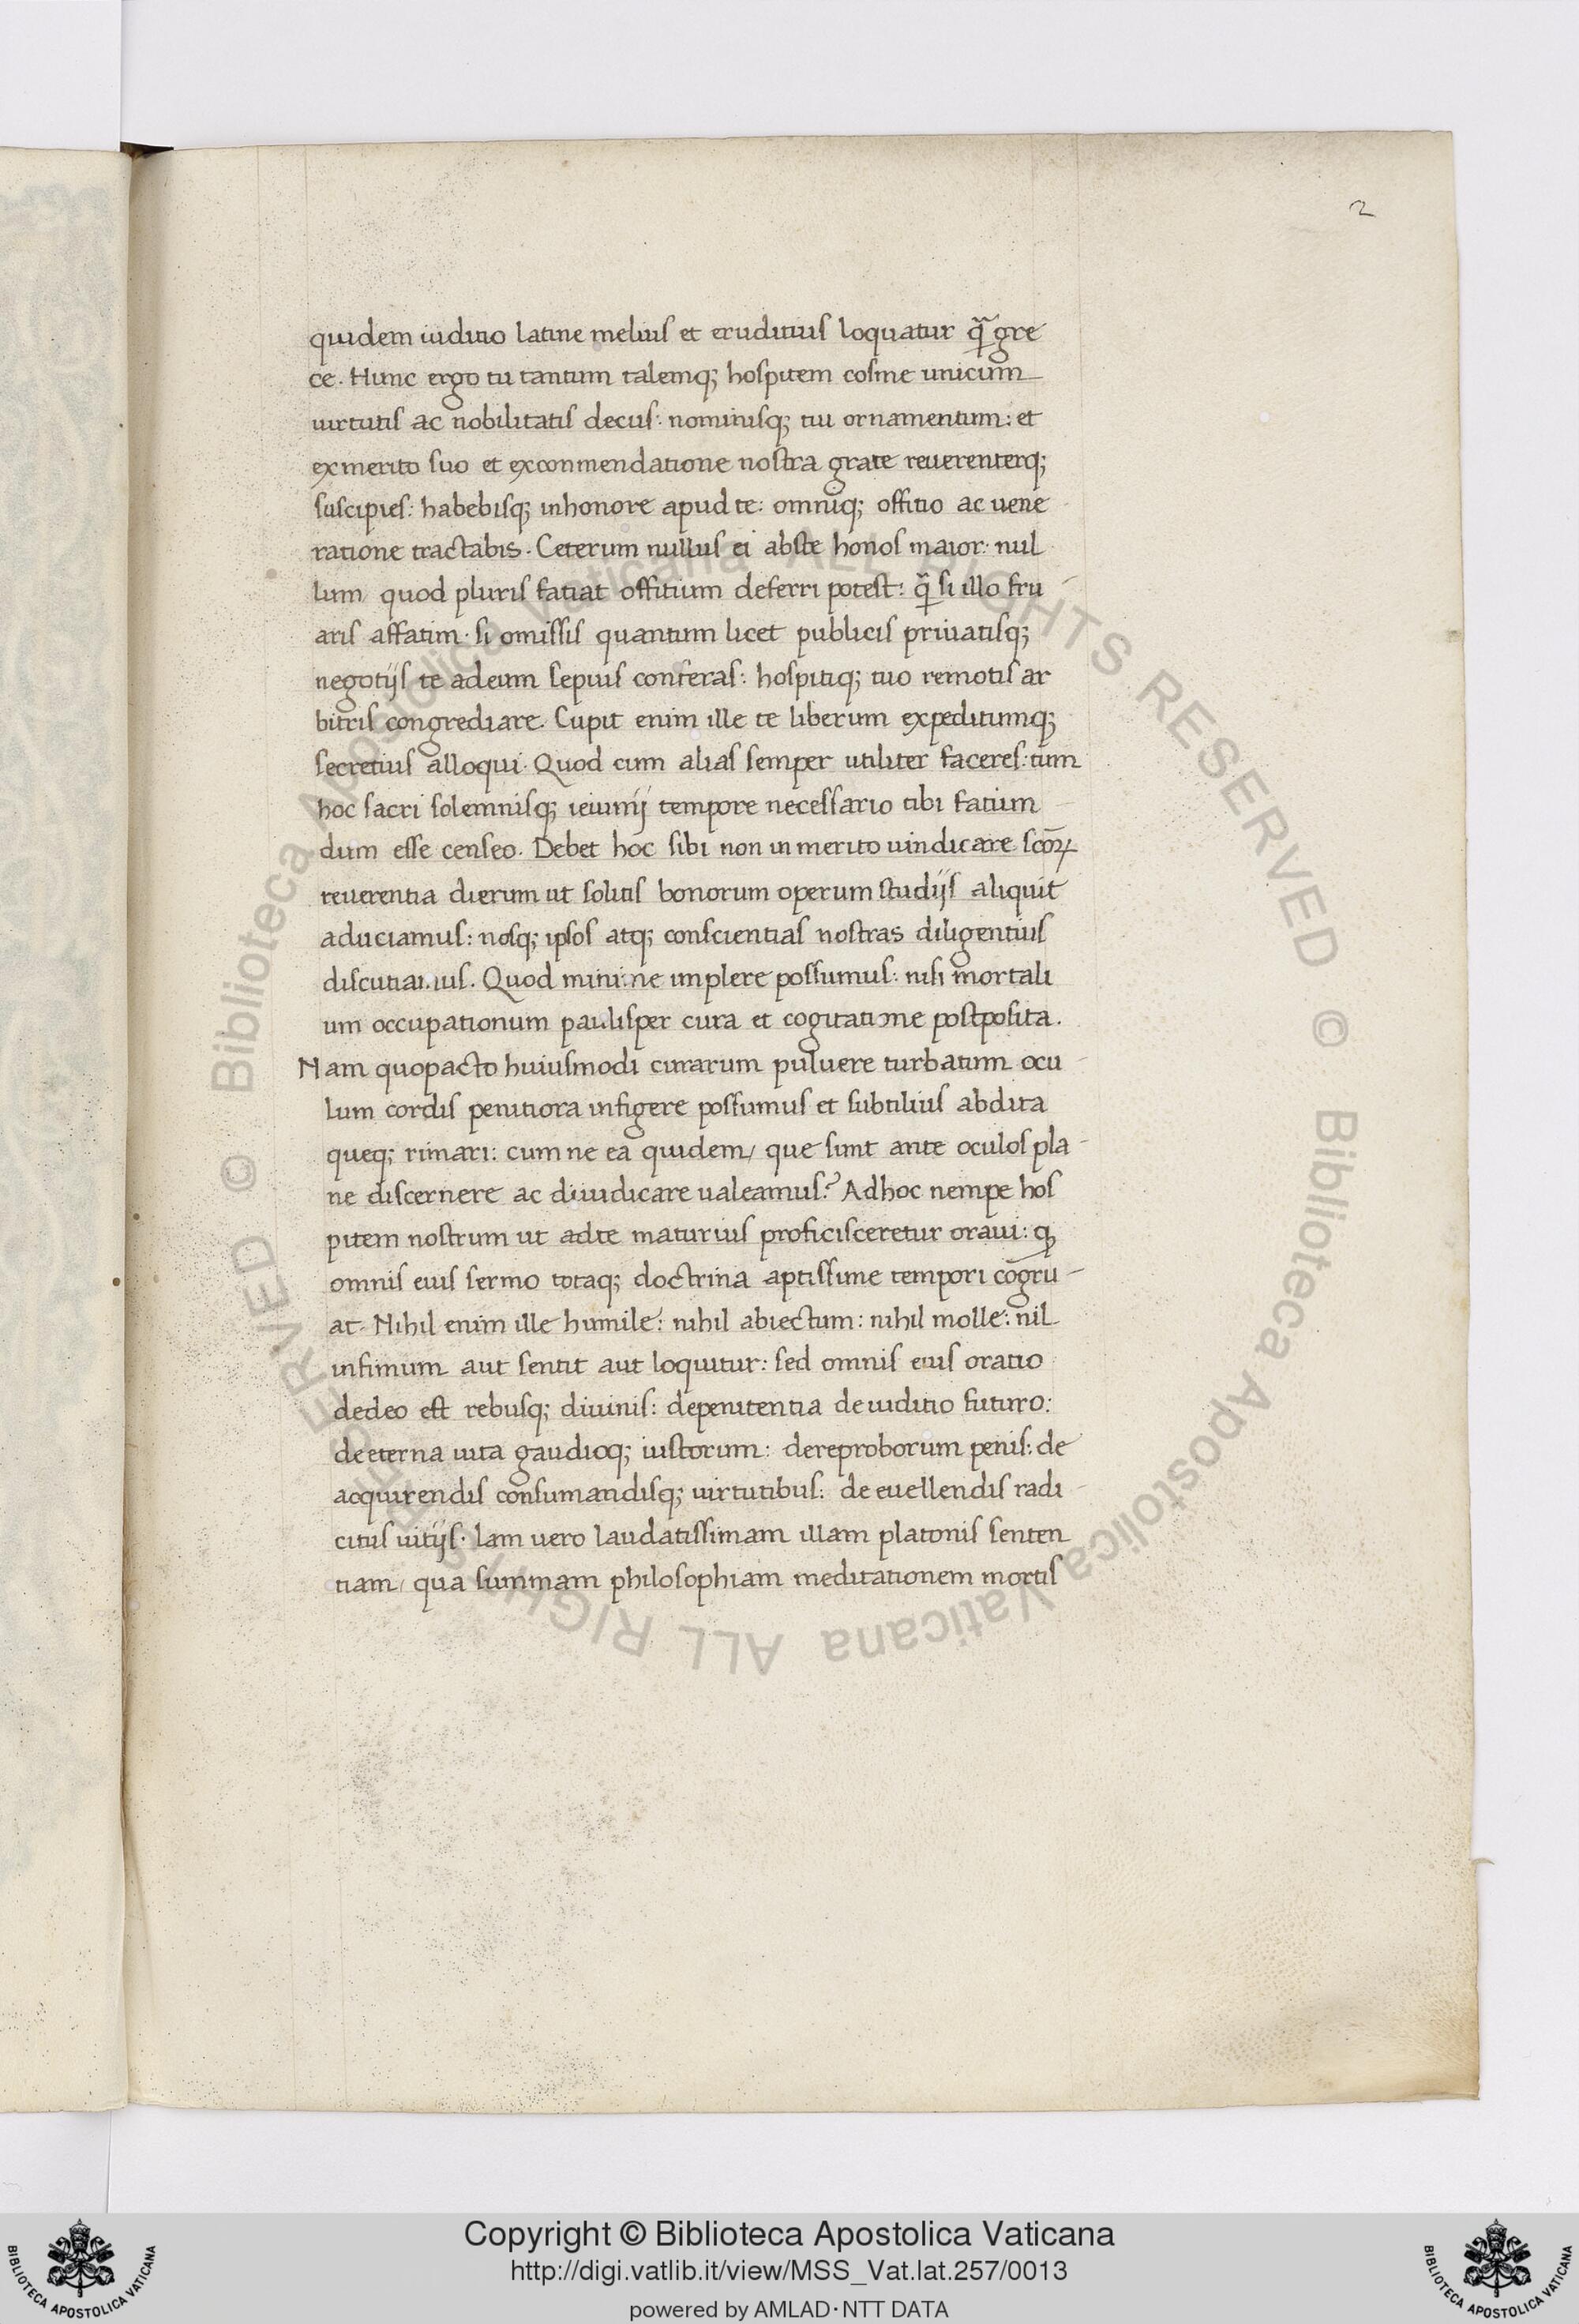 2
quidem iuditio latine melius et eruditius loquatur q̃ gre
ce. Hunc ergo tu tantum talemq; hospitem cosme unicum
uirtutis ac nobilitatis decus: nominisq; tui ornamentum: et
ex merito suo et exconmendatione nostra grate reuerenterq;
suscipies: habebisq; inhonore apud te: omniq; offitio ac uene
ratione tractabis. Ceterum nullus ei abste honos maior: nul
lum/ quod pluris fatiat offitium deferri potest: q̃ si illo fru-
aris affatim. si omissis quantum licet publicis priuatisq;
negotijs te adeum sepius conferas: hospitiq; tuo remotis ar
bitris congrediare. Cupit enim ille te liberum expeditumq;
secretius alloqui. Quod cum alias semper utiliter faceres: tum
hoc sacri solemnisq; ieiunij tempore necessario tibi fatiun
dum esse censeo. Debet hoc sibi non inmerito uindicare scōꝝ
reuerentia dierum ut solitis bonorum operum studijs aliquit
aduciamus: nosq; ipsos atq; conscientias nostras diligentius
discutiamus. Quod minime implere possumus: nisi mortali
um occupationum paulisper cura et cogitatione postposita.
Nam quopacto huiusmodi curarum puluere turbatum ocu-
lum cordis penitiora infigere possumus et subtilius abdita
queq; rimari: cum ne ea quidem/ que sunt ante oculos pla-
ne discernere ac diiudicare ualeamus? Adhoc nempe hos
pitem nostrum ut adte maturius proficisceretur oraui: ꝙ
omnis eius sermo totaq; doctrina aptissime tempori cōgru-
at. Nihil enim ille humile: nihil abiectum: nihil molle: nil
infimum aut sentit aut loquitur: sed omnis eius oratio
dedeo est rebusq; diuinis: depenitentia de iuditio futuro:
de eterna uita gaudioq; iustorum: dereproborum penis: de
acquirendis consumandisq; uirtutibus: de euellendis radi-
citus uitijs. Iam uero laudatissimam illam platonis senten
tiam/ qua summam philosophiam meditationem mortis
© Biblioteca Apostolica Vaticana ALL RIGHTS RESERVED © Biblioteca Apostolica Vaticana ALL RIGHTS RESERVED
Copyright © Biblioteca Apostolica Vaticana
http://digi.vatlib.it/view/MSS_Vat.lat.257/0013
powered by AMLAD·NTT DATA
BIBLIOTECA APOSTOLICA VATICANA
BIBLIOTECA APOSTOLICA VATICANA